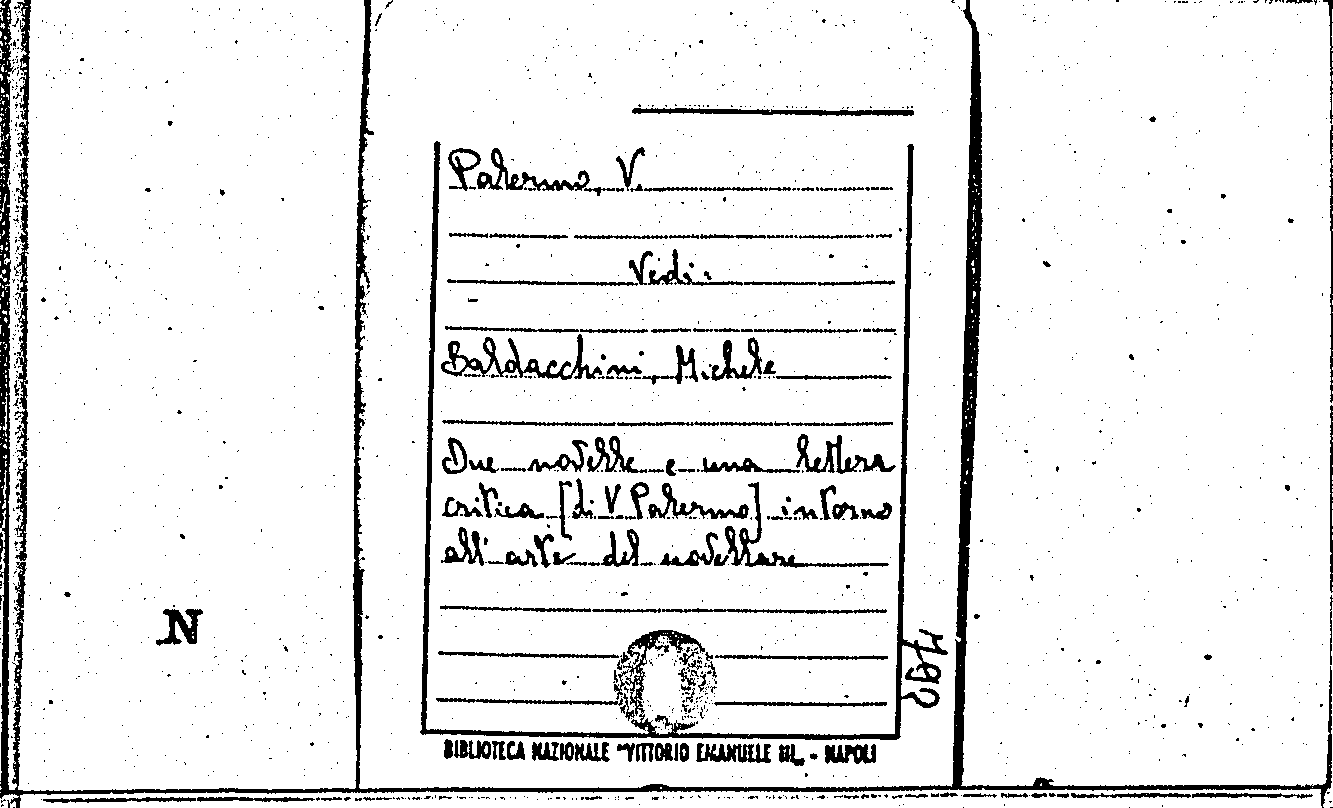 Palermo, V.
Vedi:
Baldacchini, Michele
Due novelle e una lettera
critica [di V Palermo] intorno
all'arte del novellare
N
BIBLIOTECA NAZIONALE "VITTORIO EMANUELE III„ - NAPOLI